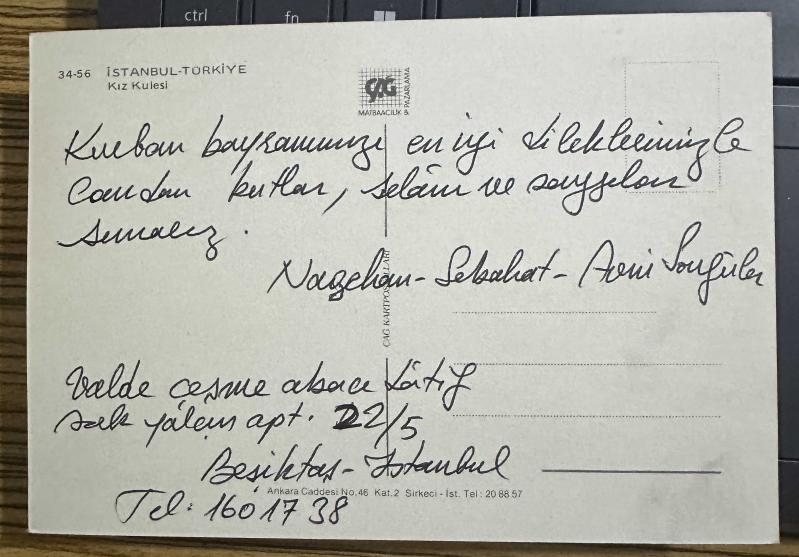 ctrl
fn
34-56 İSTANBUL-TÜRKİYE
Kız Kulesi
ÇAĞ
MATBAACILIK & PAZARLAMA
Kurban bayramınızı en iyi dileklerimizle
candan kutlar, selâm ve saygılar
sunarız.
Nazehan - Sebahat - Avni Songüler
ÇAĞ KARTPOSTALLARI
Valde çeşme abacı Lâtif
sok yalçın apt. 22/5
Beşiktaş - İstanbul
Ankara Caddesi No.46 Kat.2 Sirkeci - İst. Tel: 20 88 57
Tel: 160 17 38